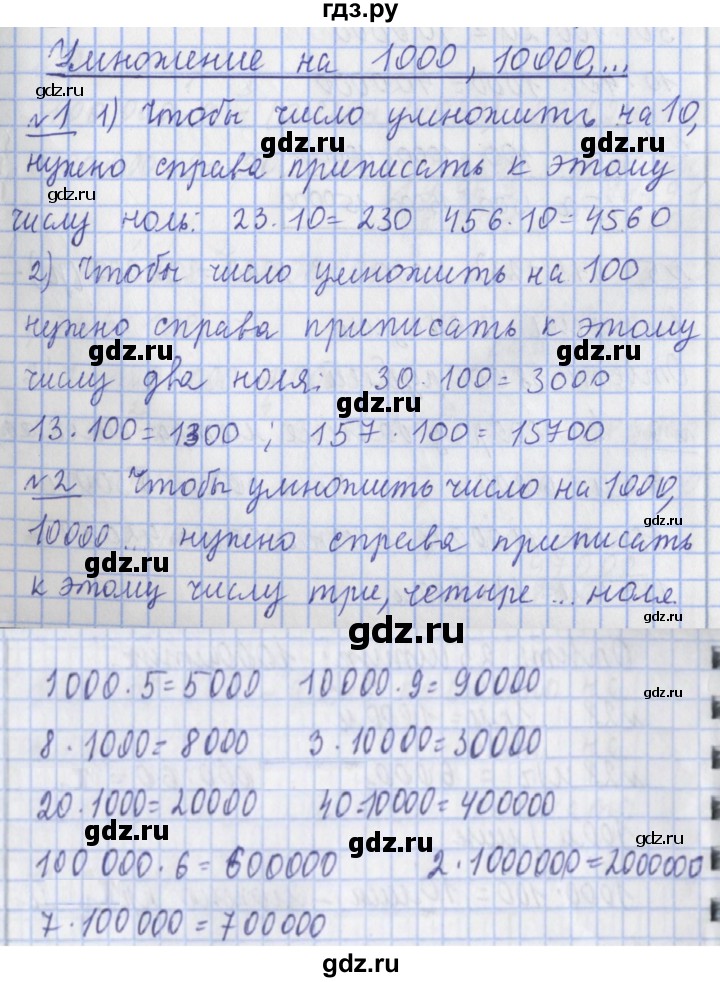 гдз.ру
Умножение на 1000, 10000,...
gdz.ru
№1 1) Чтобы число умножить на 10,
gdz.ru
gdz.ru
нужно справа приписать к этому
gdz.ru
числу ноль: 23·10=230 456·10=4560
2) Чтобы число умножить на 100
нужно справа приписать к этому
gdz.ru
gdz.ru
числу два ноля: 30·100=3000
gdz.ru
13·100=1300; 157·100=15700
№2 Чтобы умножить число на 1000,
gdz.ru
10000... нужно справа приписать
gdz.ru
gdz.ru
к этому числу три, четыре ... ноля
gdz.ru
gdz.ru
1000·5=5000 10000·9=90000
gdz.ru
8·1000=8000 3·10000=30000
20·1000=20000 40·10000=400000
gdz.ru
gdz.ru
100 000·6=600000 2·1000000=2000000
7·100 000=700000
gdz.ru
gdz.ru